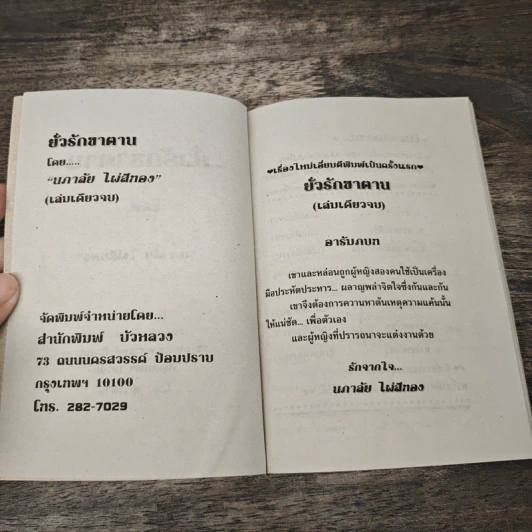 ยั่วรักซาตาน
โดย.....
"นภาลัย ไผ่สีทอง"
(เล่มเดียวจบ)
จัดพิมพ์จำหน่ายโดย...
สำนักพิมพ์ บัวหลวง
73 ถนนนครสวรรค์ ป้อมปราบ
กรุงเทพฯ 10100
โทร. 282-7029
♥เรื่องใหม่เลี่ยมดีพิมพ์เป็นครั้งแรก♥
ยั่วรักซาตาน
(เล่มเดียวจบ)
อารัมภบท
เขาและหล่อนถูกผู้หญิงสองคนใช้เป็นเครื่อง
มือประหัตประหาร... ผลาญพล่าจิตใจซึ่งกันและกัน
เขาจึงต้องการควานหาต้นเหตุความแค้นนั้น
ให้แน่ชัด... เพื่อตัวเอง
และผู้หญิงที่ปรารถนาจะแต่งงานด้วย
รักจากใจ...
นภาลัย ไผ่สีทอง